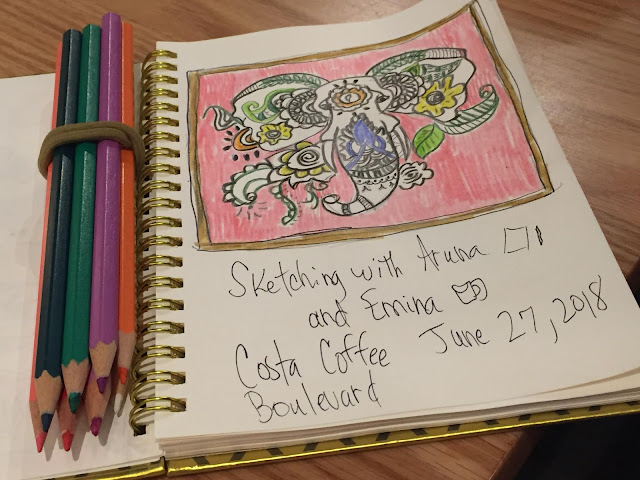 Sketching with Aruna
and Emina
Costa Coffee June 27, 2018
Boulevard